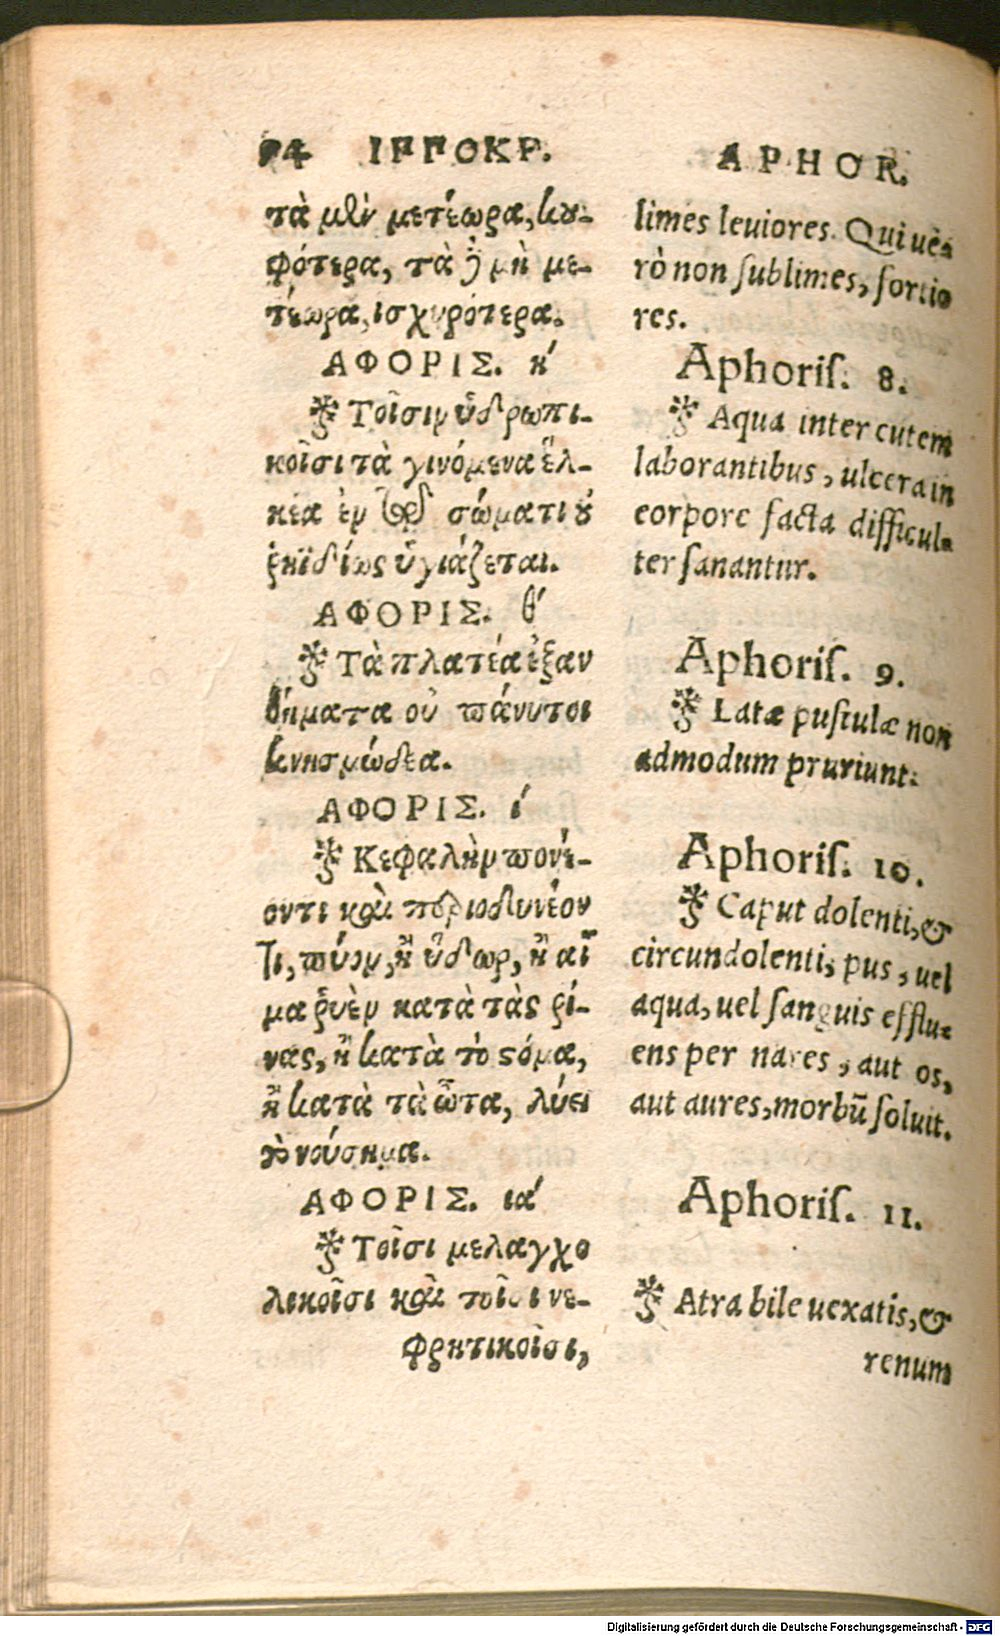 94 ΙΠΠΟΚΡ.
τὰ μὲν μετέωρα, κου-
φότερα, τὰ δὲ μὴ με-
τέωρα, ἰσχυρότερα.
ΑΦΟΡΙΣ. η΄
Τοῖσιν ὑδρωπι-
κοῖσι τὰ γινόμενα ἕλ-
κεα ἐν τῷ σώματι οὐ
ῥηϊδίως ὑγιάζεται.
ΑΦΟΡΙΣ. θ΄
Τὰ πλατέα ἐξαν
θήματα οὐ πάνυ τοι
κνησμώδεα.
ΑΦΟΡΙΣ. ί
Κεφαλὴν πονέ-
οντι καὶ περιωδυνέον
τι, πύον, ἢ ὕδωρ, ἢ αἷ
μα ῥυὲν κατὰ τὰς ῥί-
νας, ἢ κατὰ τὸ στόμα,
ἢ κατὰ τὰ ὦτα, λύει
τὸ νούσημα.
ΑΦΟΡΙΣ. ια΄
Τοῖσι μελαγχο
λικοῖσι καὶ τοῖσι νε-
φρητικοῖσι,
APHOR.
limes leuiores. Qui uè-
rò non ſublimes, fortio
res.
Aphoriſ. 8.
Aqua inter cutem
laborantibus, ulcera in
corpore facta difficul-
ter ſanantur.
Aphoriſ. 9.
Latæ puſtulæ non
admodum pruriunt.
Aphoriſ. 10.
Caput dolenti, &
circundolenti, pus, uel
aqua, uel ſanguis efflu-
ens per nares, aut os,
aut aures, morbū ſoluit.
Aphoriſ. 11.
Atra bile uexatis, &
renum
Digitalisierung gefördert durch die Deutsche Forschungsgemeinschaft - DFG